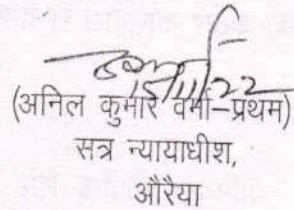 15/11/22
(अनिल कुमार वर्मा-प्रथम)
सत्र न्यायाधीश,
औरैया